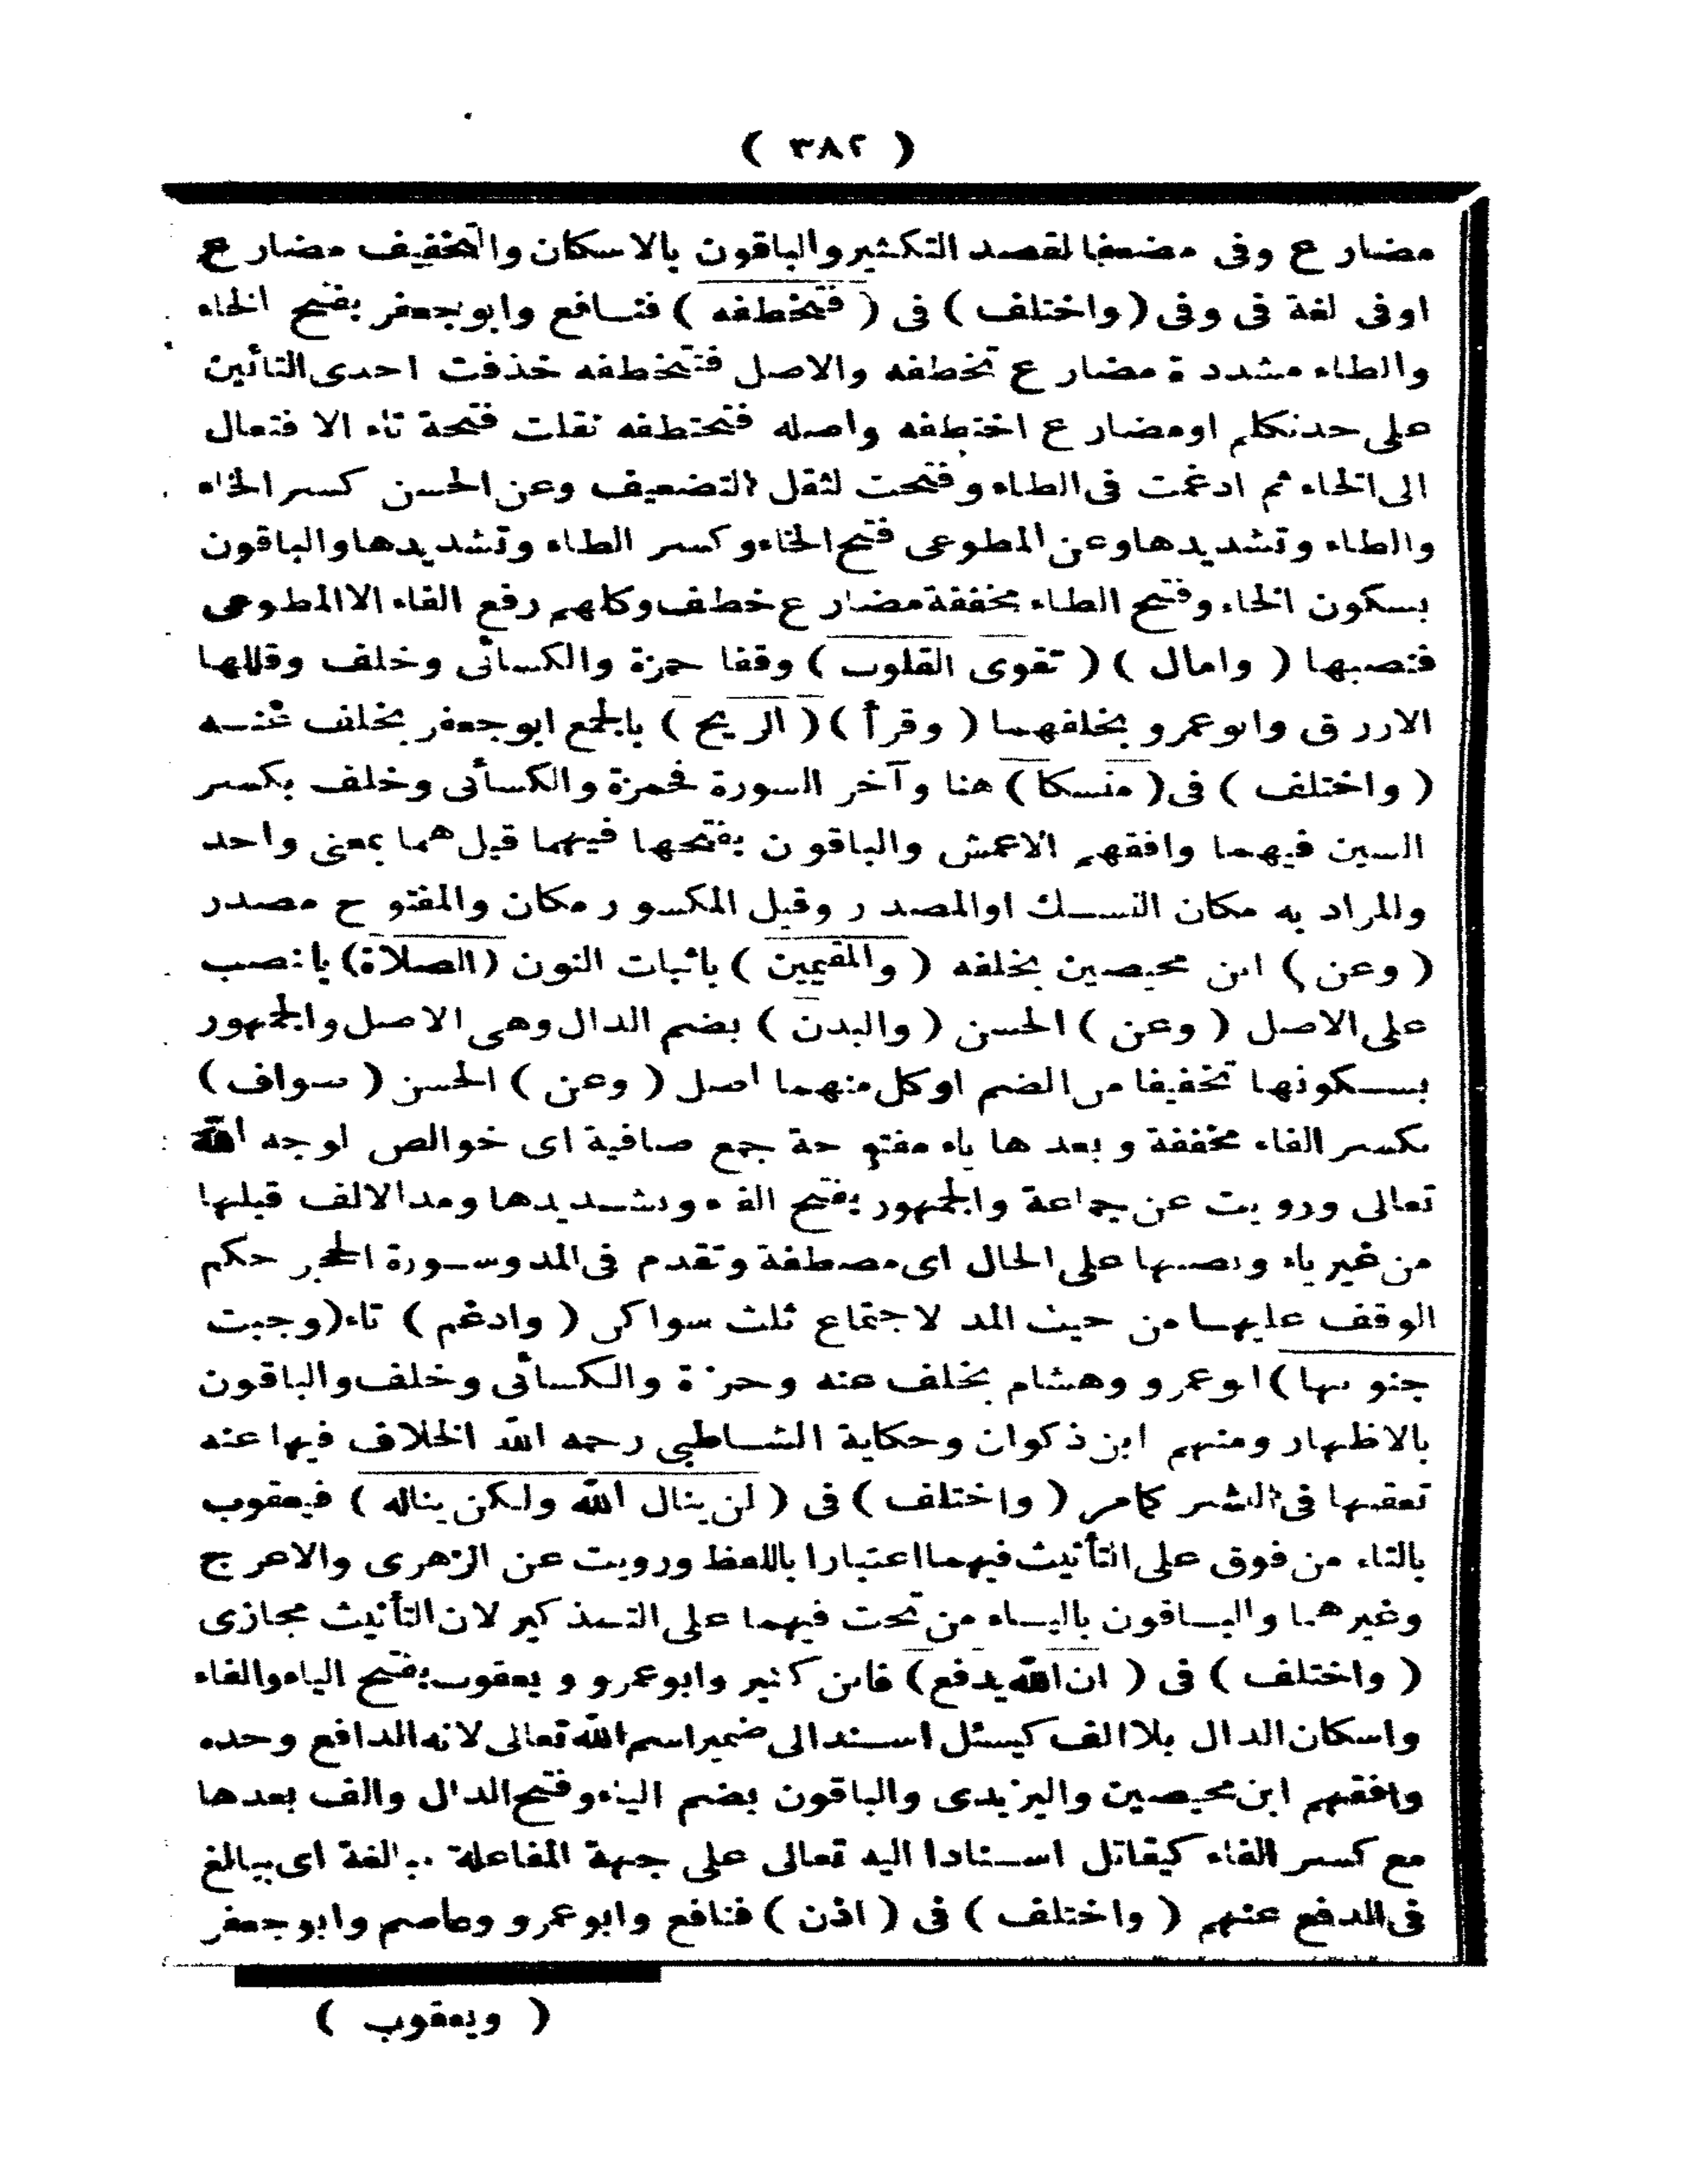 ( ٣٨٢ )
مضارع وفى مضعفا لقصد التكثير والباقون بالاسكان والتخفيف مضارع
اوفى لغة فى وفى ( واختلف ) فى ( فتخطفه ) فنافع وابوجعفر بفتح الخاء
والطاء مشددة مضارع تخطفه والاصل فتتخطفه حذفت احدى التائين
على حدتكلم اومضارع اختطفه واصله فتختطفه نقلت فتحة تاء الافتعال
الى الخاء ثم ادغمت فى الطاء وفتحت لثقل التضعيف وعن الحسن كسر الخاء
والطاء وتشديدها وعن المطوعى فتح الخاء وكسر الطاء وتشديدها والباقون
بسكون الخاء وفتح الطاء مخففة مضارع خطف وكلهم رفع الفاء الا المطوعى
فنصبها ( وامال ) ( تقوى القلوب ) وقفا حمزة والكسائى وخلف وقللها
الازرق وابوعمرو بخلفهما ( وقرأ ) ( الريح ) بالجمع ابوجعفر بخلف عنه
( واختلف ) فى ( منسكا ) هنا وآخر السورة فحمزة والكسائى وخلف بكسر
السين فيهما وافقهم الاعمش والباقون بفتحها فيهما قيل هما بمعنى واحد
والمراد به مكان النسك اوالمصدر وقيل المكسور مكان والمفتوح مصدر
( وعن ) ابن محيصين بخلفه ( والمقيمين ) باثبات النون ( الصلاة ) بالنصب
على الاصل ( وعن ) الحسن ( والبدن ) بضم الدال وهى الاصل والجمهور
بسكونها تخفيفا من الضم اوكل منهما اصل ( وعن ) الحسن ( صواف )
بكسر الفاء مخففة وبعدها ياء مفتوحة جمع صافية اى خوالص لوجه الله
تعالى ورويت عن جماعة والجمهور بفتح الفاء وتشديدها ومد الالف قبلها
من غير ياء ونصبها على الحال اى مصطفة وتقدم فى المد وسورة الحجر حكم
الوقف عليها من حيث المد لاجتماع ثلث سواكن ( وادغم ) تاء ( وجبت
جنوبها ) ابوعمرو وهشام بخلف عنه وحمزة والكسائى وخلف والباقون
بالاظهار ومنهم ابن ذكوان وحكاية الشاطبى رحمه الله الخلاف فيها عنه
تعقبها فى النشر كمامر ( واختلف ) فى ( لن ينال الله ولكن يناله ) فيعقوب
بالتاء من فوق على التأنيث فيهما اعتبارا باللفظ ورويت عن الزهرى والاعرج
وغيرهما والباقون بالياء من تحت فيهما على التذكير لان التأنيث مجازى
( واختلف ) فى ( ان الله يدفع ) فابن كثير وابوعمرو ويعقوب بفتح الياء والفاء
واسكان الدال بلاالف كيسئل اسند الى ضمير اسم الله تعالى لانه الدافع وحده
وافقهم ابن محيصين واليزيدى والباقون بضم الياء وفتح الدال والف بعدها
مع كسر الفاء كيقاتل اسنادا اليه تعالى على جهة المفاعلة مبالغة اى يبالغ
فى الدفع عنهم ( واختلف ) فى ( اذن ) فنافع وابوعمرو وعاصم وابوجعفر
( ويعقوب )